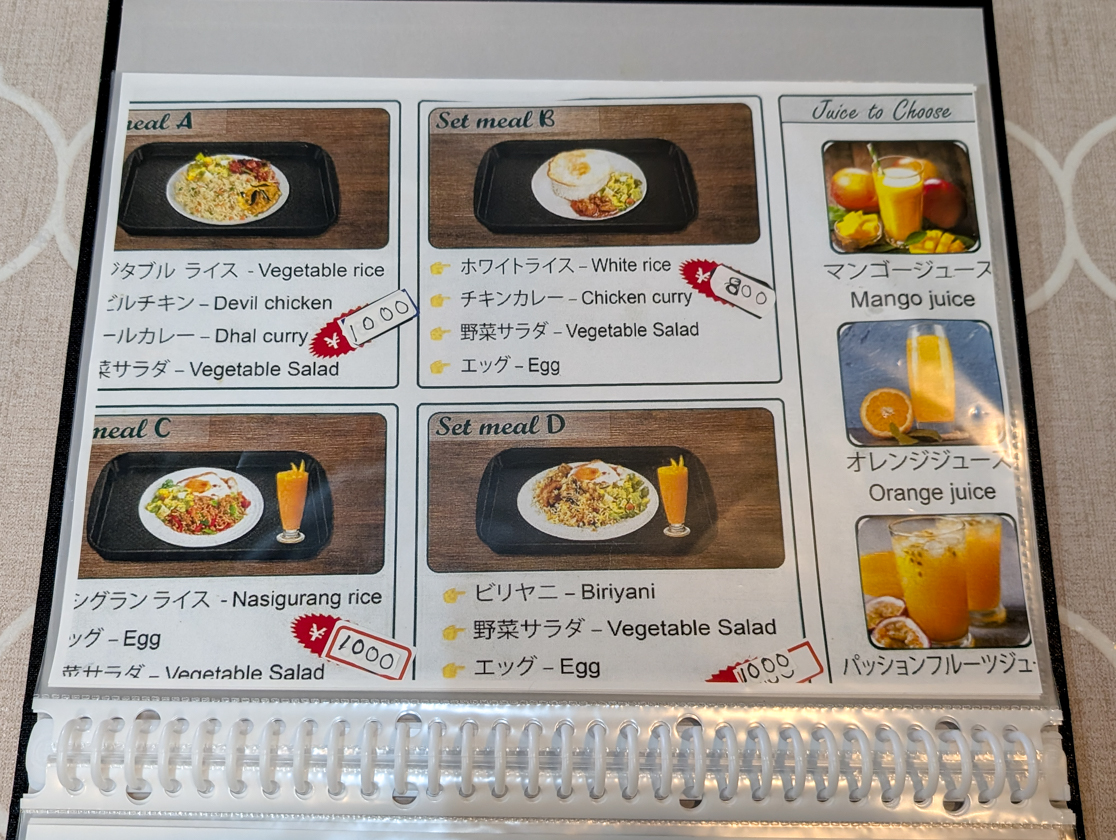 meal A
タブル ライス - Vegetable rice
ビルチキン – Devil chicken
ールカレー – Dhal curry
¥ 1000
菜サラダ – Vegetable Salad
Set meal B
ホワイトライス – White rice
¥ 800
チキンカレー – Chicken curry
野菜サラダ – Vegetable Salad
エッグ – Egg
meal C
シグラン ライス - Nasigurang rice
ッグ – Egg
¥ 1000
菜サラダ – Vegetable Salad
Set meal D
ビリヤニ – Biriyani
野菜サラダ – Vegetable Salad
エッグ – Egg
1000
Juice to Choose
マンゴージュース
Mango juice
オレンジジュース
Orange juice
パッションフルーツジュ